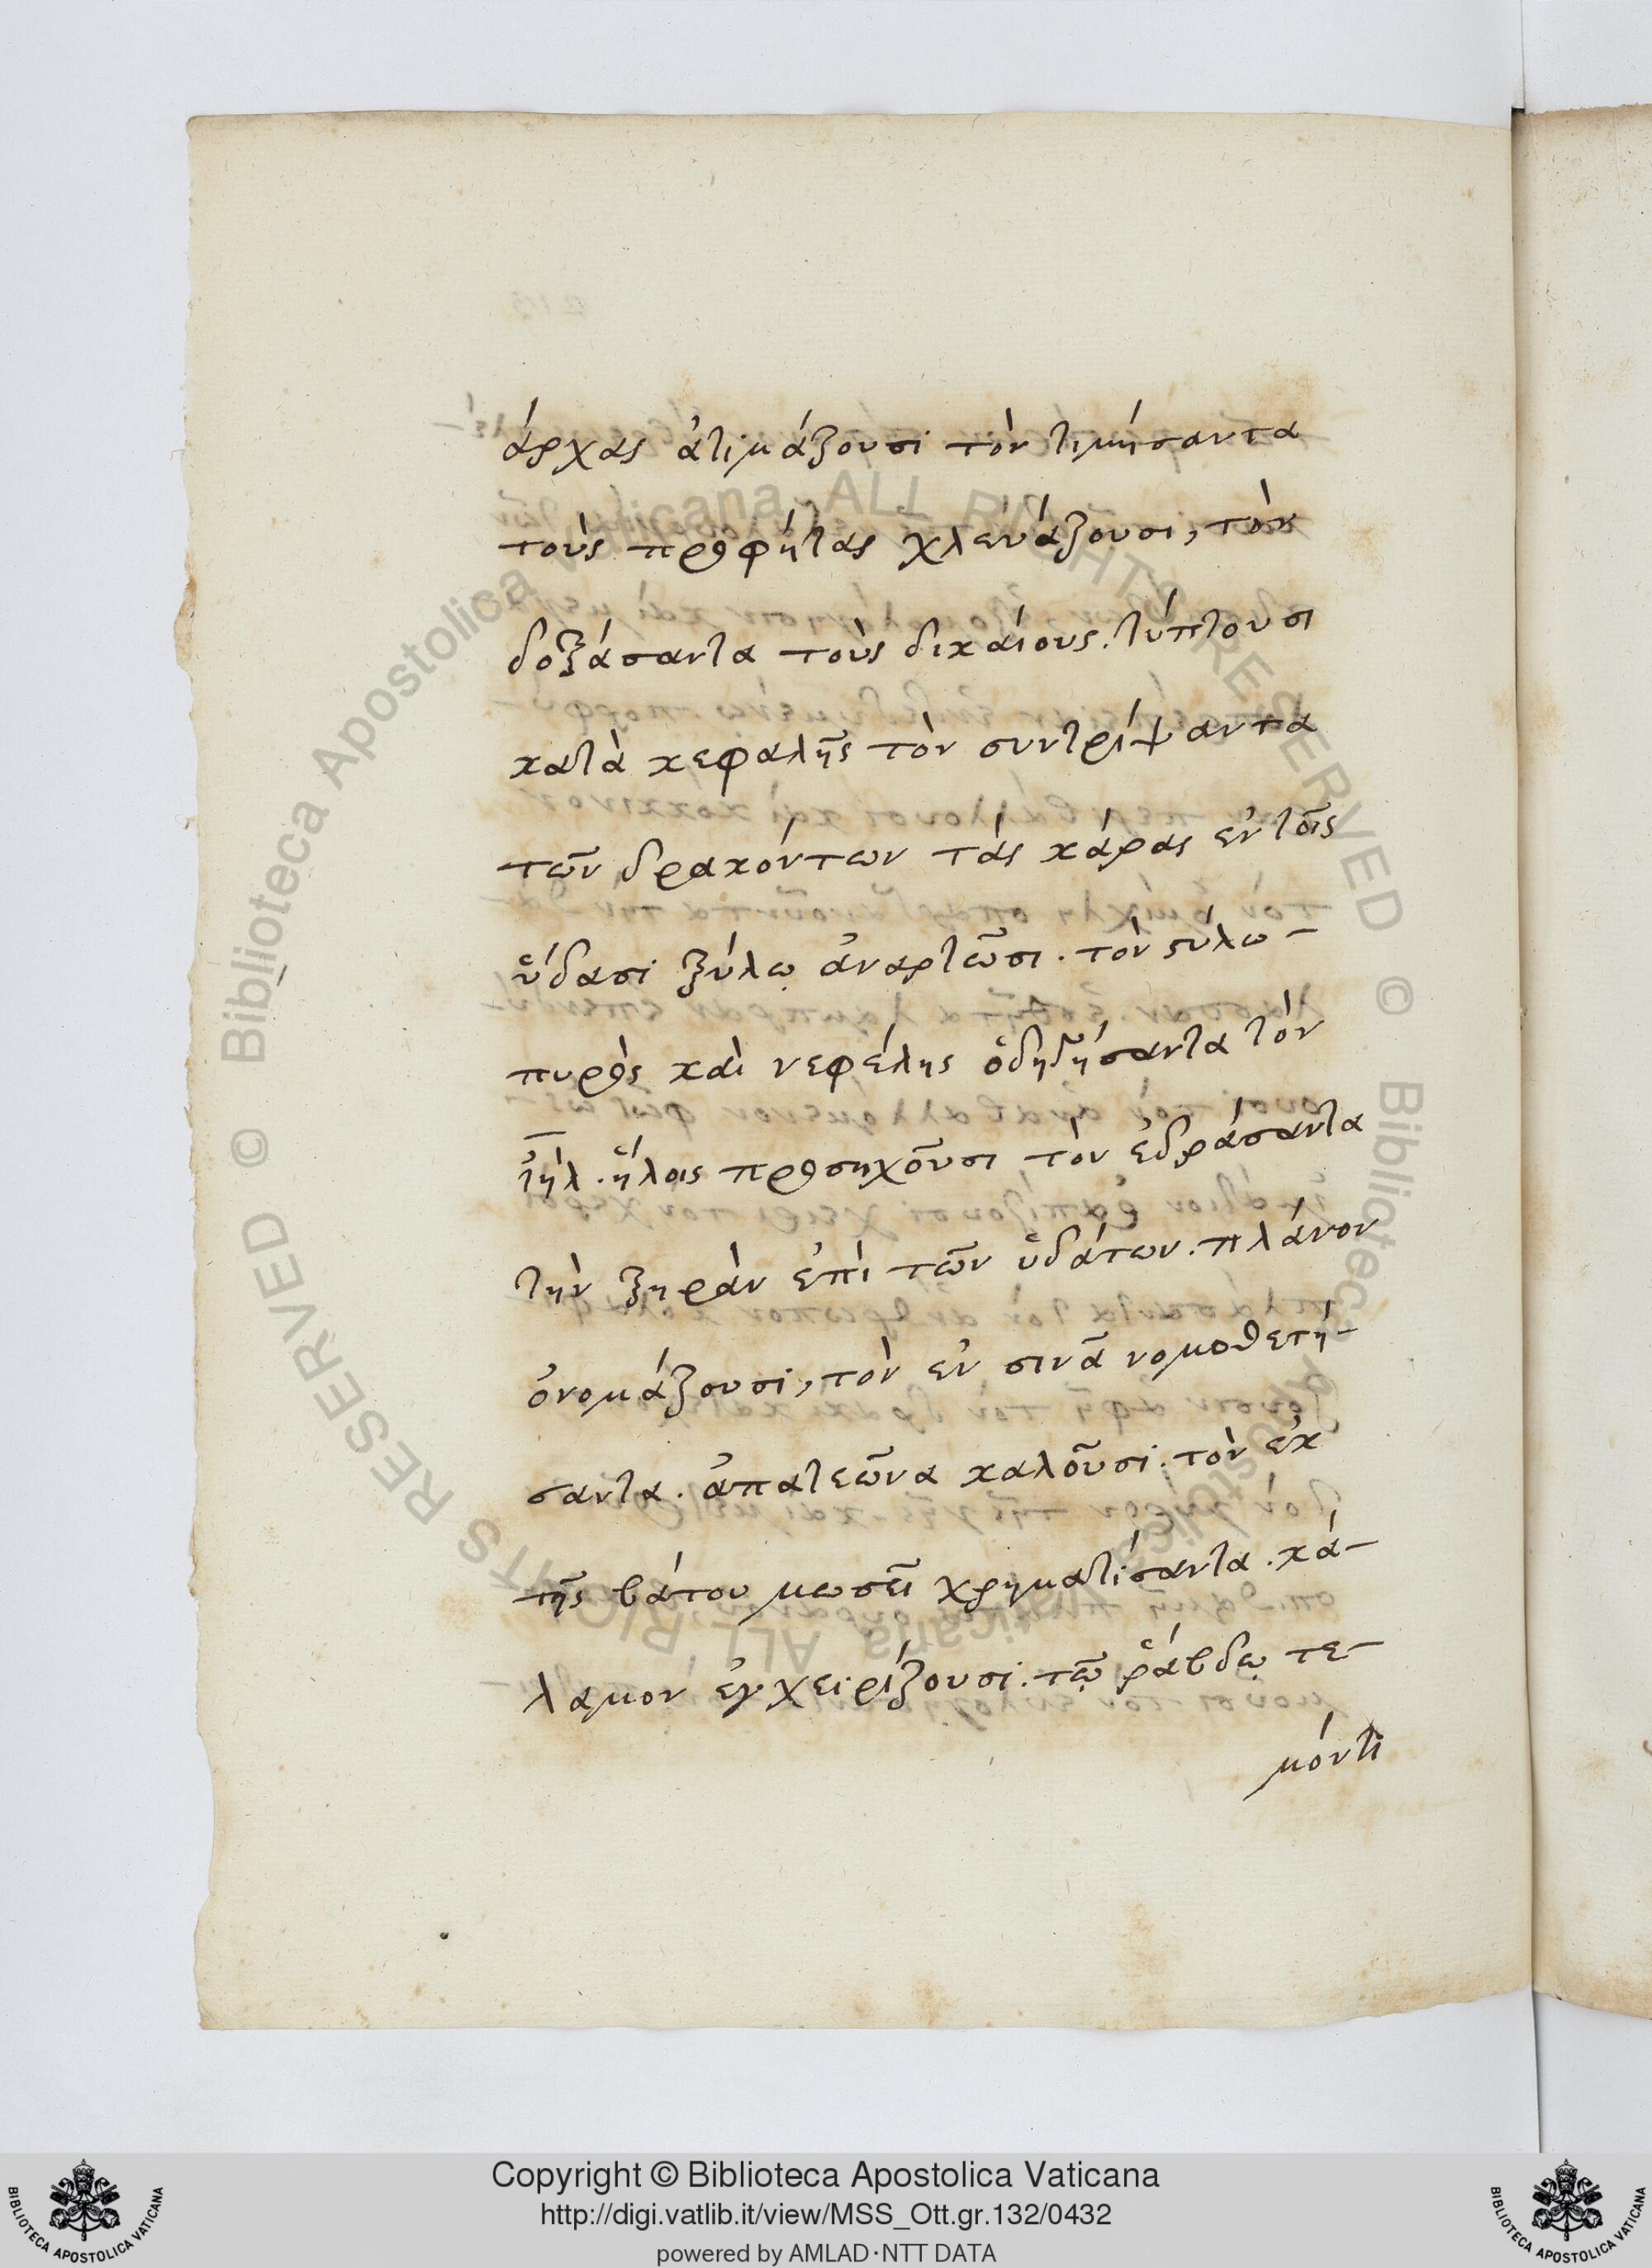 άρχας ἀτιμάζουσι τὸν τιμήσαντα
τοὺς προφήτας χλευάζουσι, τὸν
δοξάσαντα τοὺς δικαίους. τύπτουσι
κατὰ κεφαλῆς τὸν συντρίψαντα
τῶν δρακόντων τὰς κάρας ἐν τοῖς
ὕδασι ξύλῳ ἀναρτῶσι. τὸν ϛύλω-
πυρὸς καὶ νεφέλης ὁδηγήσαντα τὸν
ἰηλ. ἥλοις προσηχοῦσι τὸν ἑδράσαντα
τὴν ξηρὰν ἐπὶ τῶν ὑδάτων. πλάνον
ὀνομάζουσι, τὸν ἐν σινᾶ νομοθετή-
σαντα. ἀπατεῶνα καλοῦσι. τὸν ἐκ
τῆς βάτου μωσεῖ χρηματίσαντα. κά-
λαμον ἐγχειρίζουσι. τῷ ῥάβδῳ τε-
μόντι
Copyright © Biblioteca Apostolica Vaticana
http://digi.vatlib.it/view/MSS_Ott.gr.132/0432
powered by AMLAD·NTT DATA
BIBLIOTECA APOSTOLICA VATICANA
BIBLIOTECA APOSTOLICA VATICANA
© Biblioteca Apostolica Vaticana ALL RIGHTS RESERVED © Biblioteca Apostolica Vaticana ALL RIGHTS RESERVED